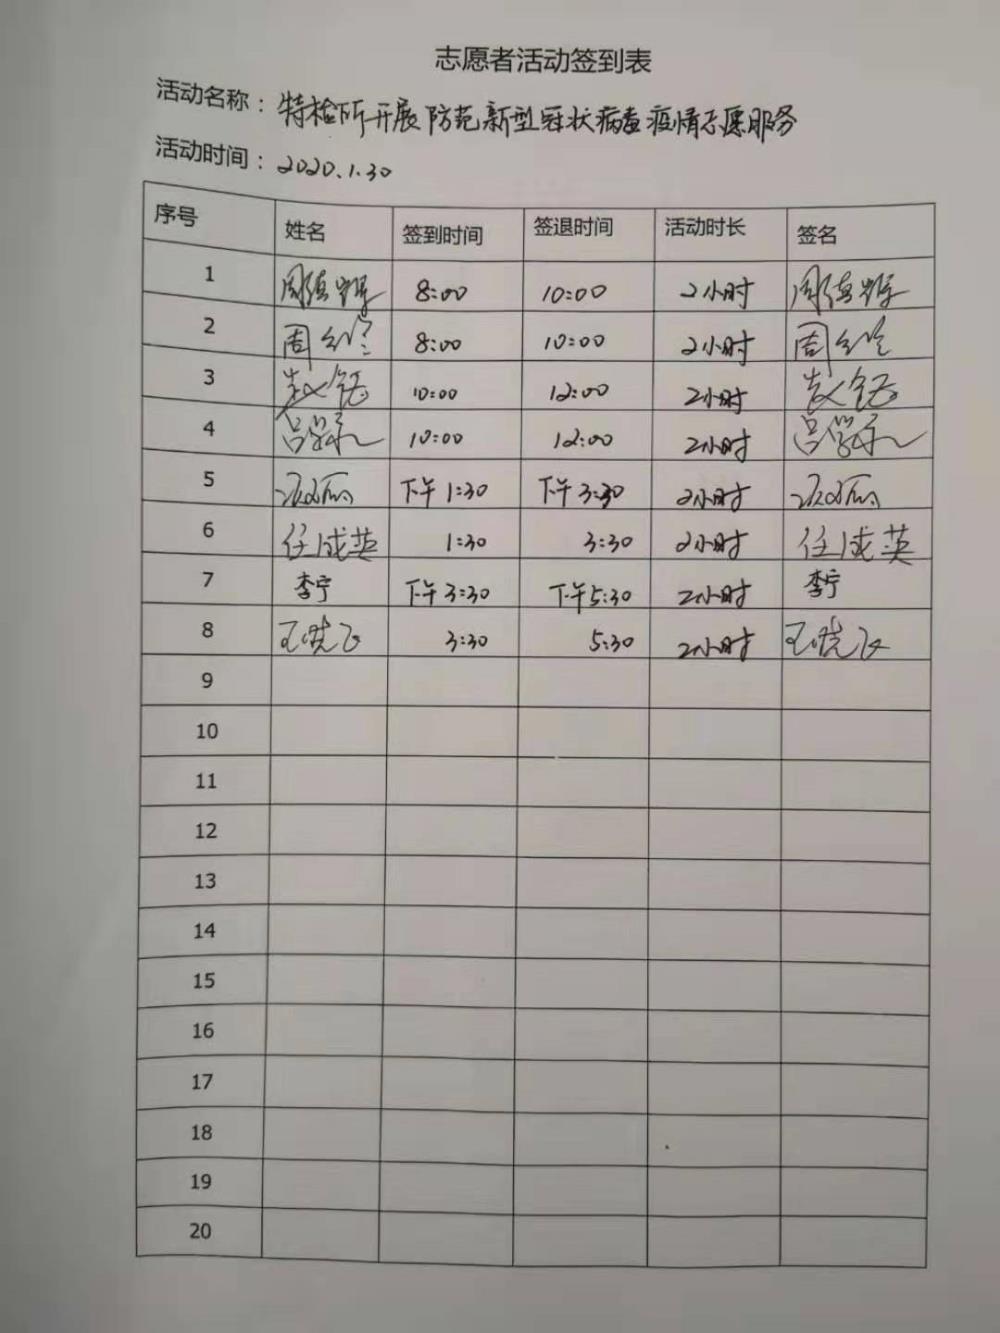 志愿者活动签到表
活动名称：特检所开展防范新型冠状病毒疫情志愿服务
活动时间：2020.1.30
序号 姓名 签到时间 签退时间 活动时长 签名
1 8:00 10:00 2小时
2 周 8:00 10:00 2小时 周
3 赵 10:00 12:00 2小时 赵
4 吕 10:00 12:00 2小时 吕
5 下午1:30 下午3:30 2小时
6 任成英 1:30 3:30 2小时 任成英
7 李宁 下午3:30 下午5:30 2小时 李宁
8 王晓飞 3:30 5:30 2小时 王晓飞
9
10
11
12
13
14
15
16
17
18
19
20